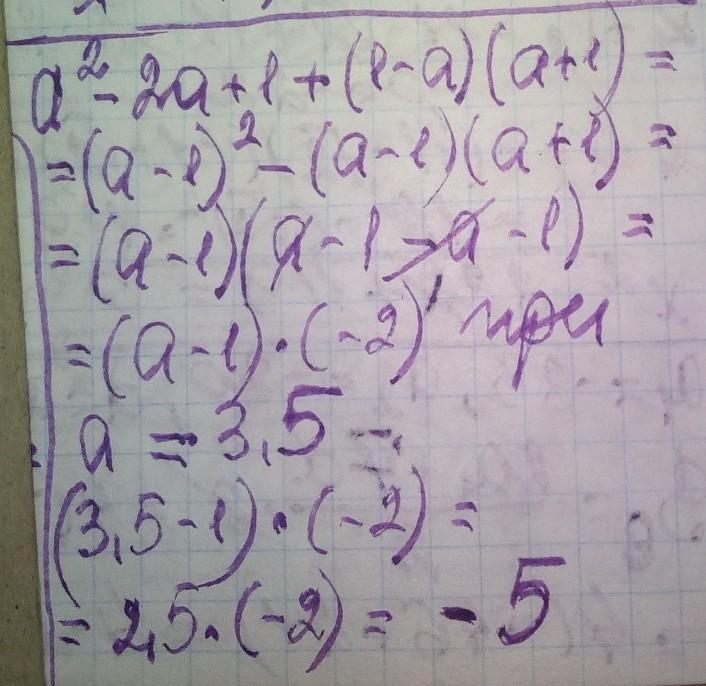 a² - 2a + 1 + (1 - a)(a + 1) =
= (a - 1)² - (a - 1)(a + 1) =
= (a - 1)(a - 1 - a - 1) =
= (a - 1) · (-2), при
a = 3,5
(3,5 - 1) · (-2) =
= 2,5 · (-2) = - 5